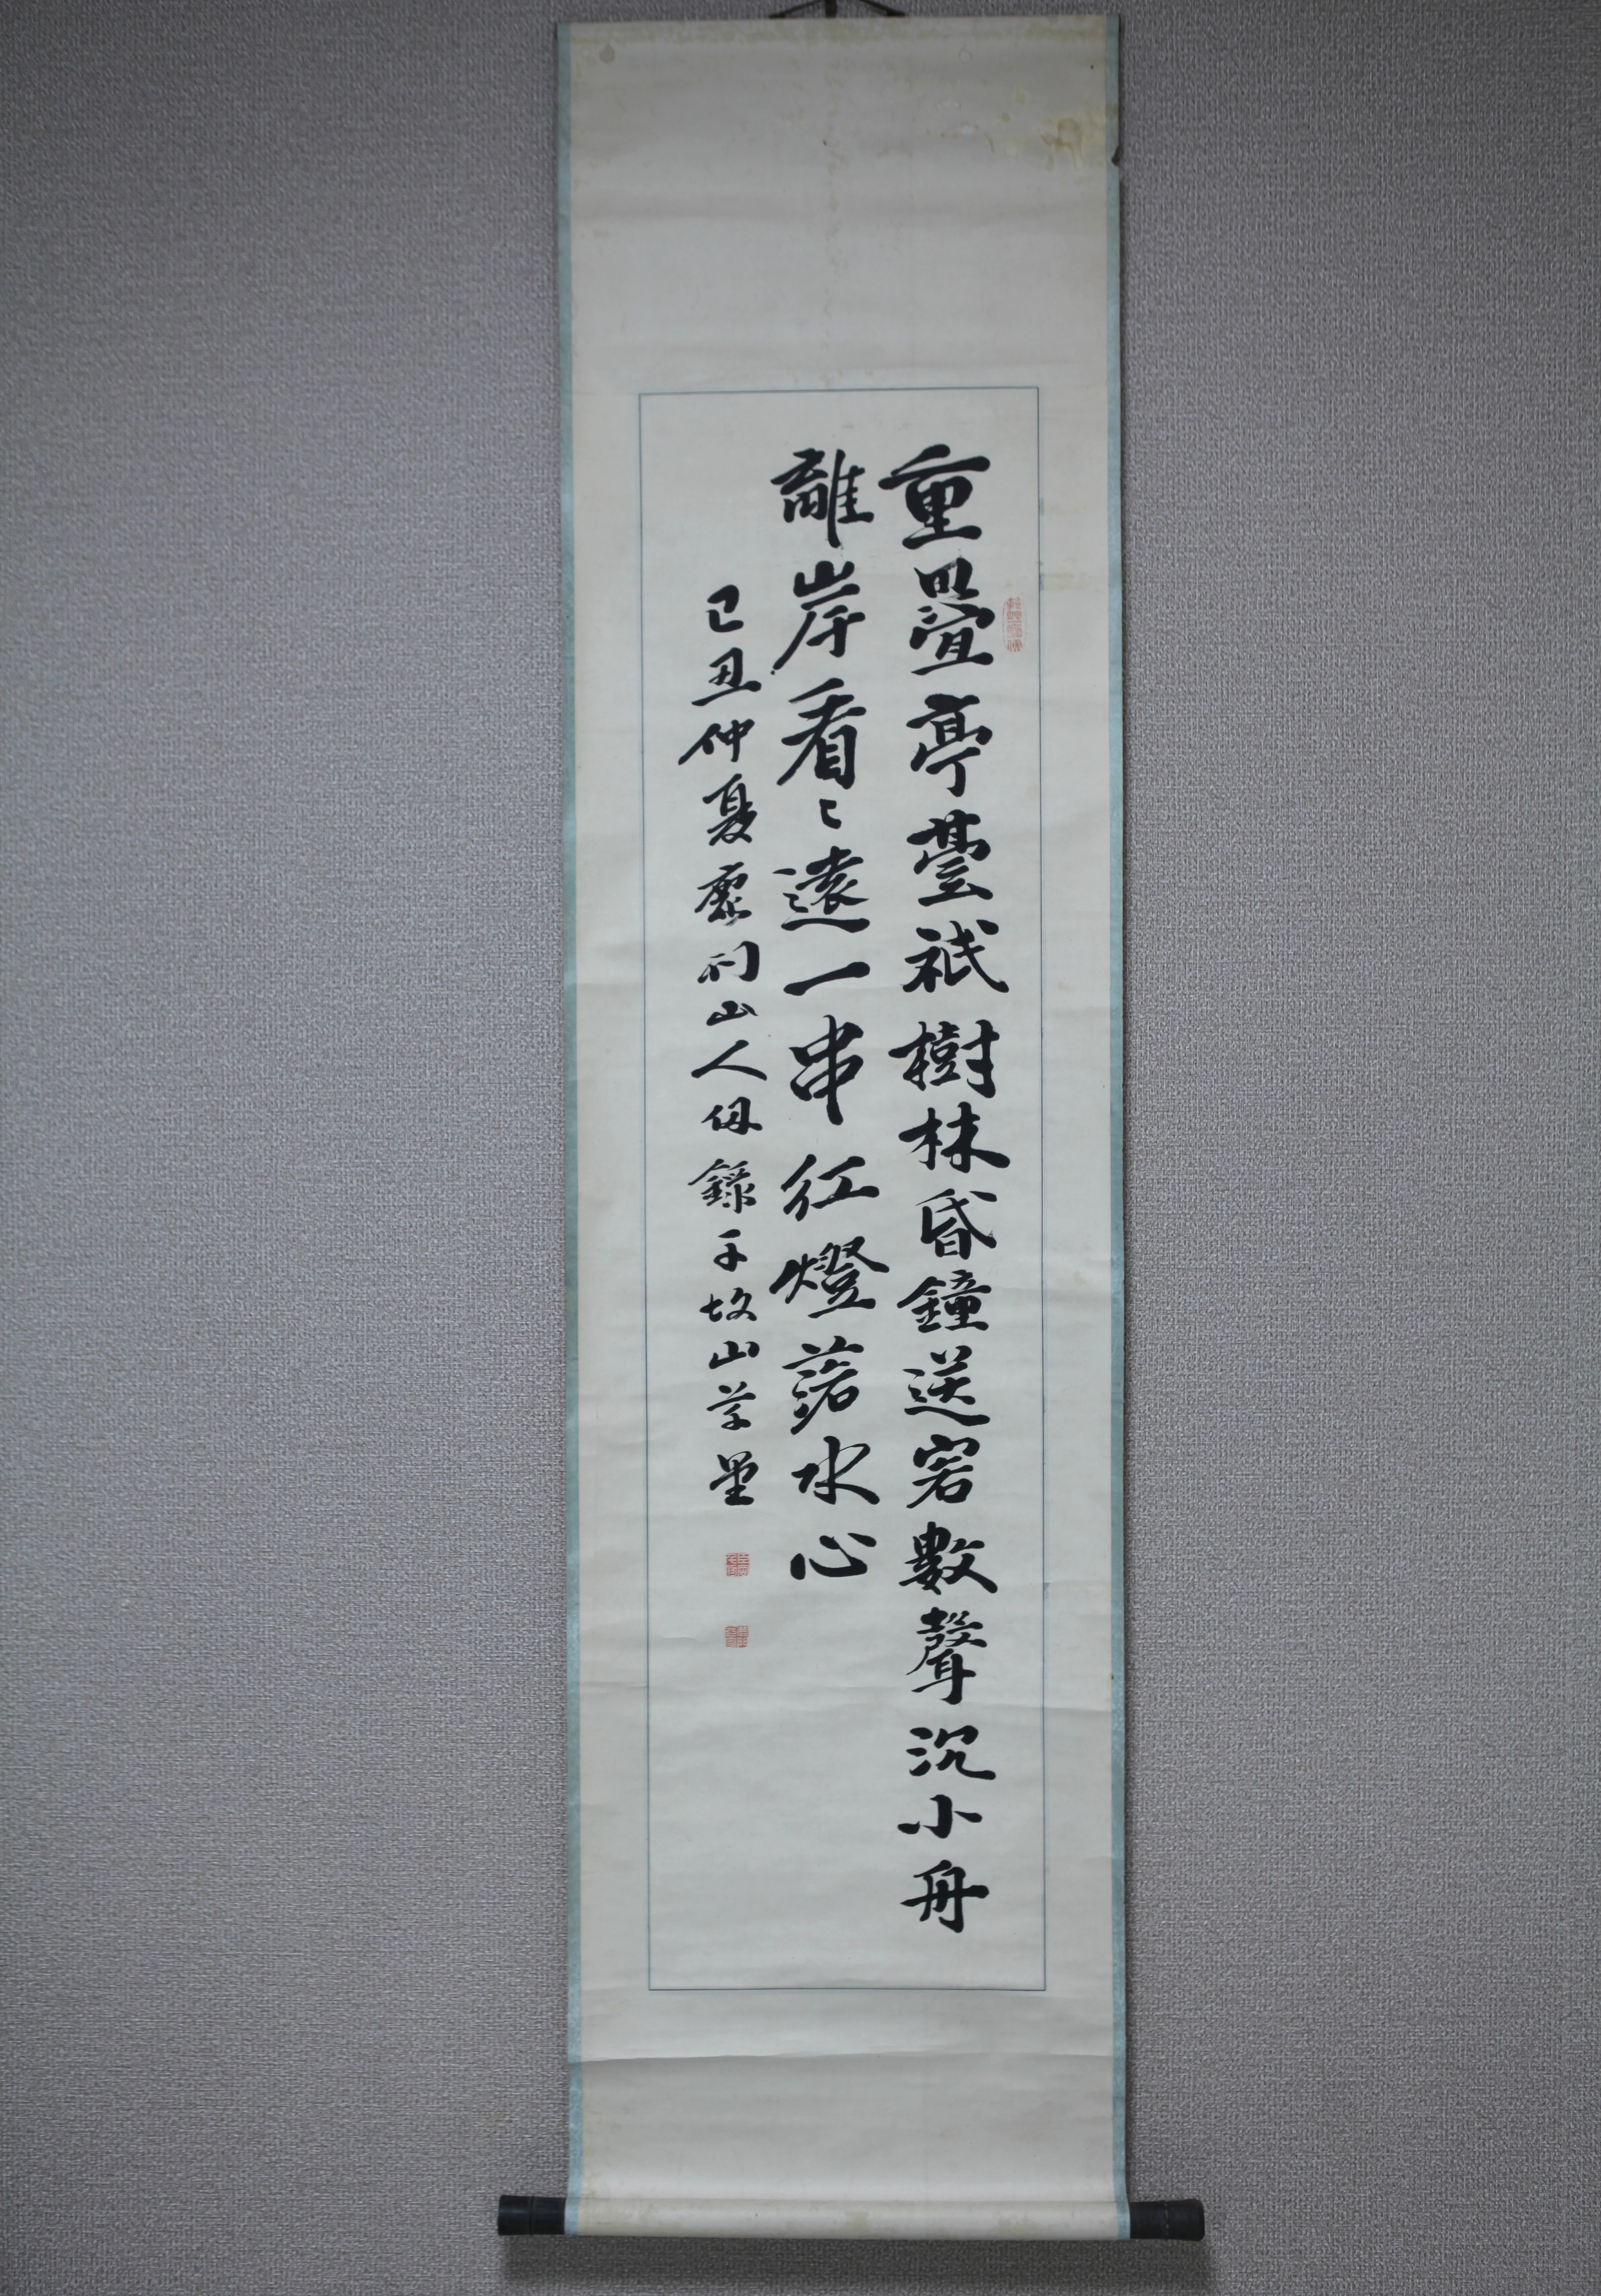 重疊亭臺祇樹林昏鐘送客數聲沉小舟
離岸看〻遠一串紅燈落水心
己丑仲夏 山人 錄于故山草堂